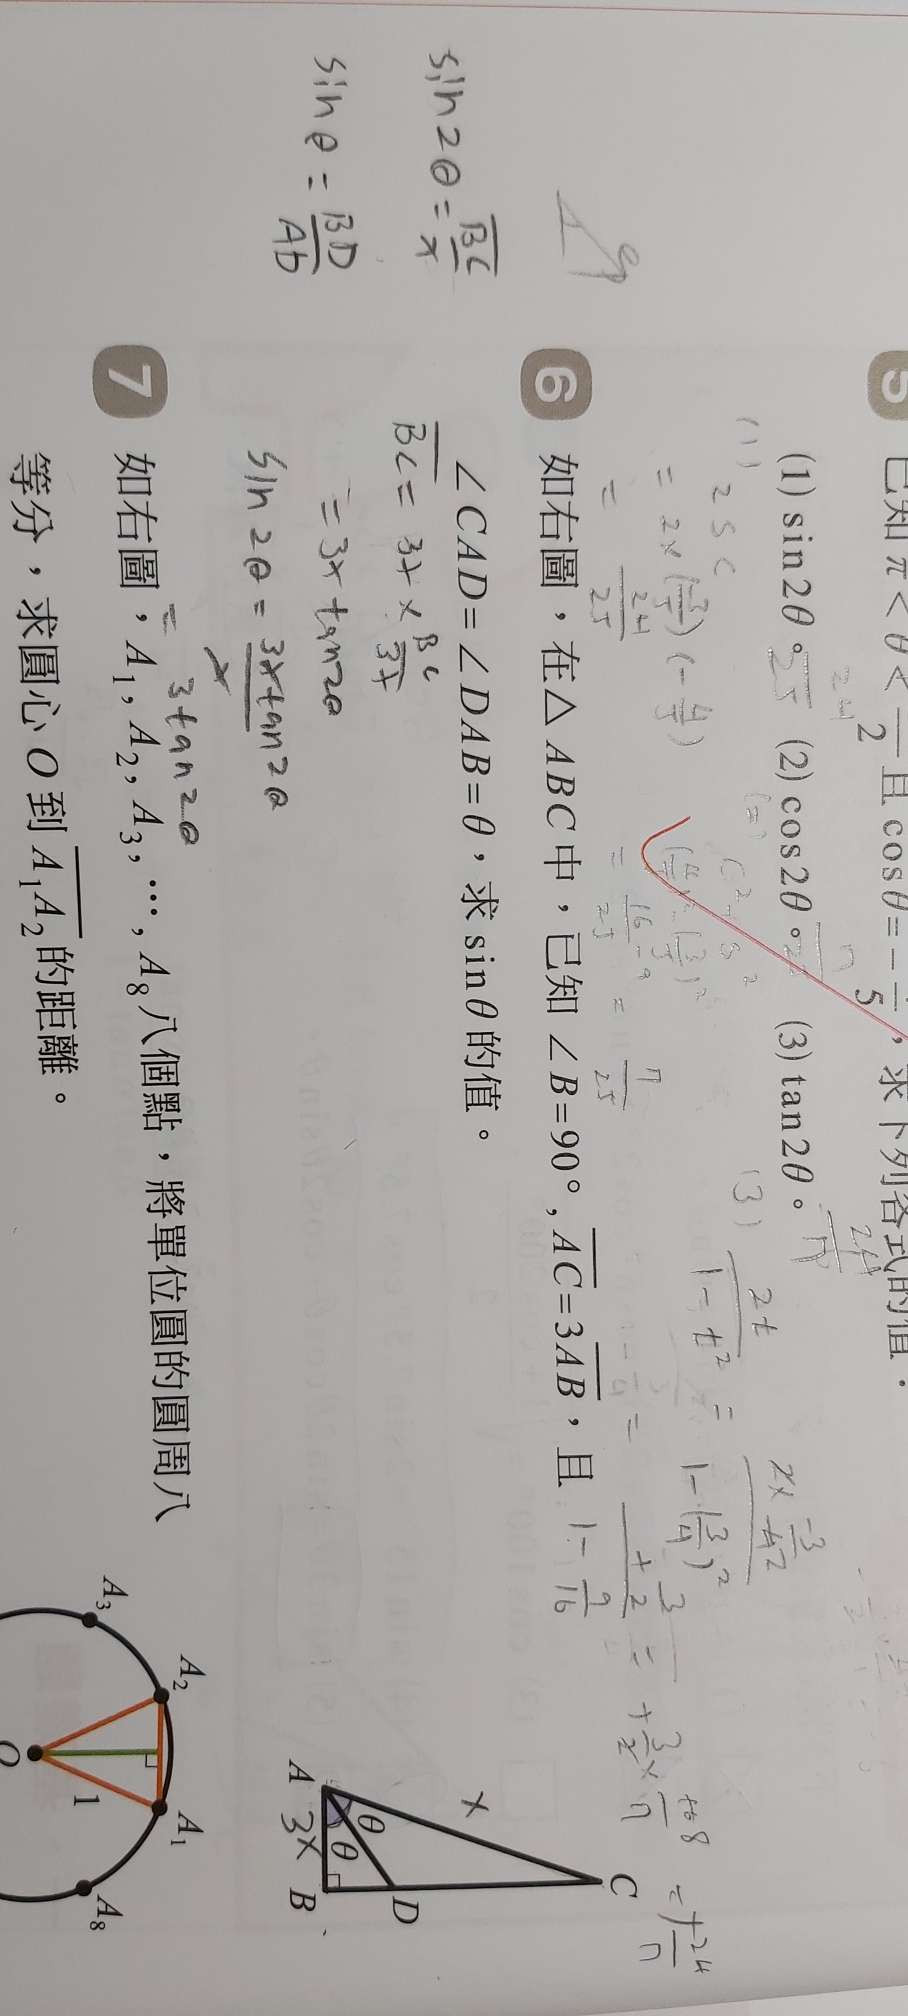 5 已知 π < θ < —/2 且 cosθ = −—/5，求下列各式的值。
(1) sin2θ。 (2) cos2θ。 (3) tan2θ。
24/25
(1) 2SC
= 2×(-3/5)(-4/5)
= 24/25
(2) C² - S²
= 16-9/25 = 7/25
(3) 2t/1-t² =
6 如右圖，在△ABC中，已知∠B=90°, AC=3AB，且
∠CAD=∠DAB=θ，求sinθ的值。
sin2θ = BC/x
sinθ = BD/AD
BC = 3x × BC/3x
= 3x tan2θ
sin2θ = 3x tan2θ/x
= 3 tan2θ
A
B
C
D
θ
θ
x
3x
7 如右圖，A₁, A₂, A₃, ⋯, A₈八個點，將單位圓的圓周八
等分，求圓心O到A₁A₂的距離。
A₃
A₂
A₁
A₈
O
1